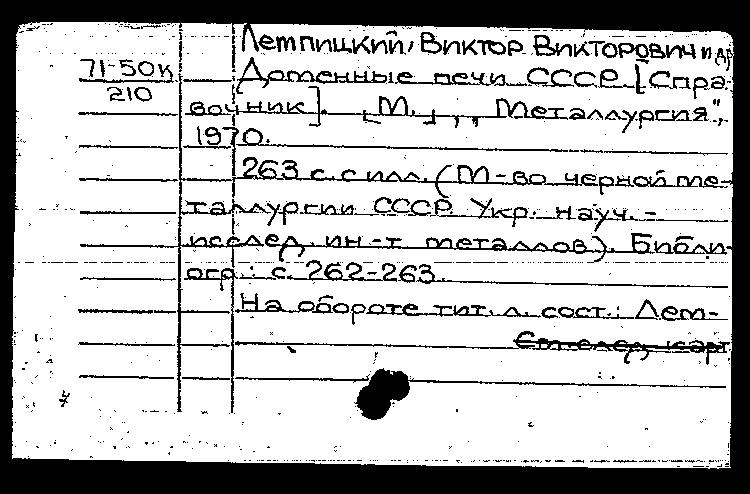 Лемпицкий, Виктор Викторович и др.
71-50К
210
Доменные печи СССР. [Спра-
вочник]. [М.], "Металлургия",
1970.
263 с. с илл. (М-во черной ме-
таллургии СССР. Укр. науч.-
исслед. ин-т металлов). Библи-
огр.: с. 262-263.
На обороте тит. л. сост.: Лем-
См. след. карт